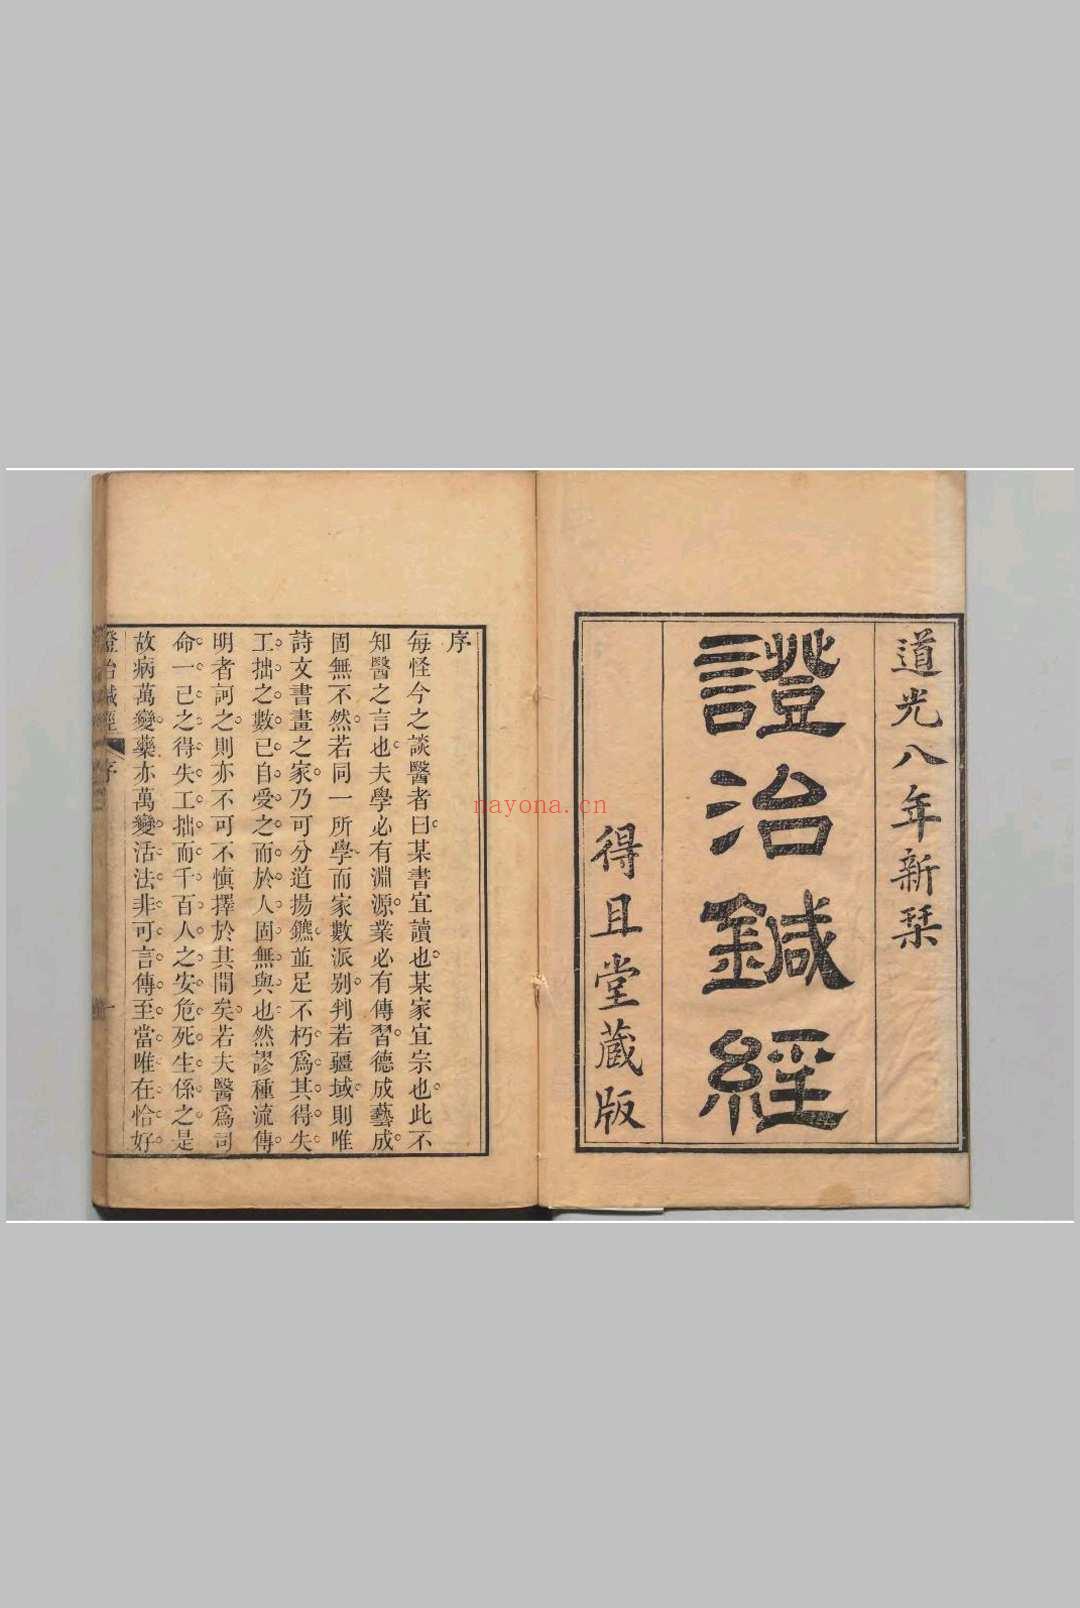 道光八年新栞
證治鍼經
得且堂蔵版
序
每怪今之談醫者曰某書宜讀也某家宜宗也此不
知醫之言也夫學必有淵源業必有傳習德成藝成
固無不然若同一所學而家數派别判若疆域則唯
詩文書畫之家乃可分道揚鑣並足不朽爲其得失
工拙之數已自受之而於人固無與也然謬種流傳
明者訶之則亦不可不慎擇於其間矣若夫醫爲司
命一已之得失工拙而千百人之安危死生係之是
故病萬變藥亦萬變活法非可言傳至當唯在恰好
證治鍼經 序 一
nayona.cn